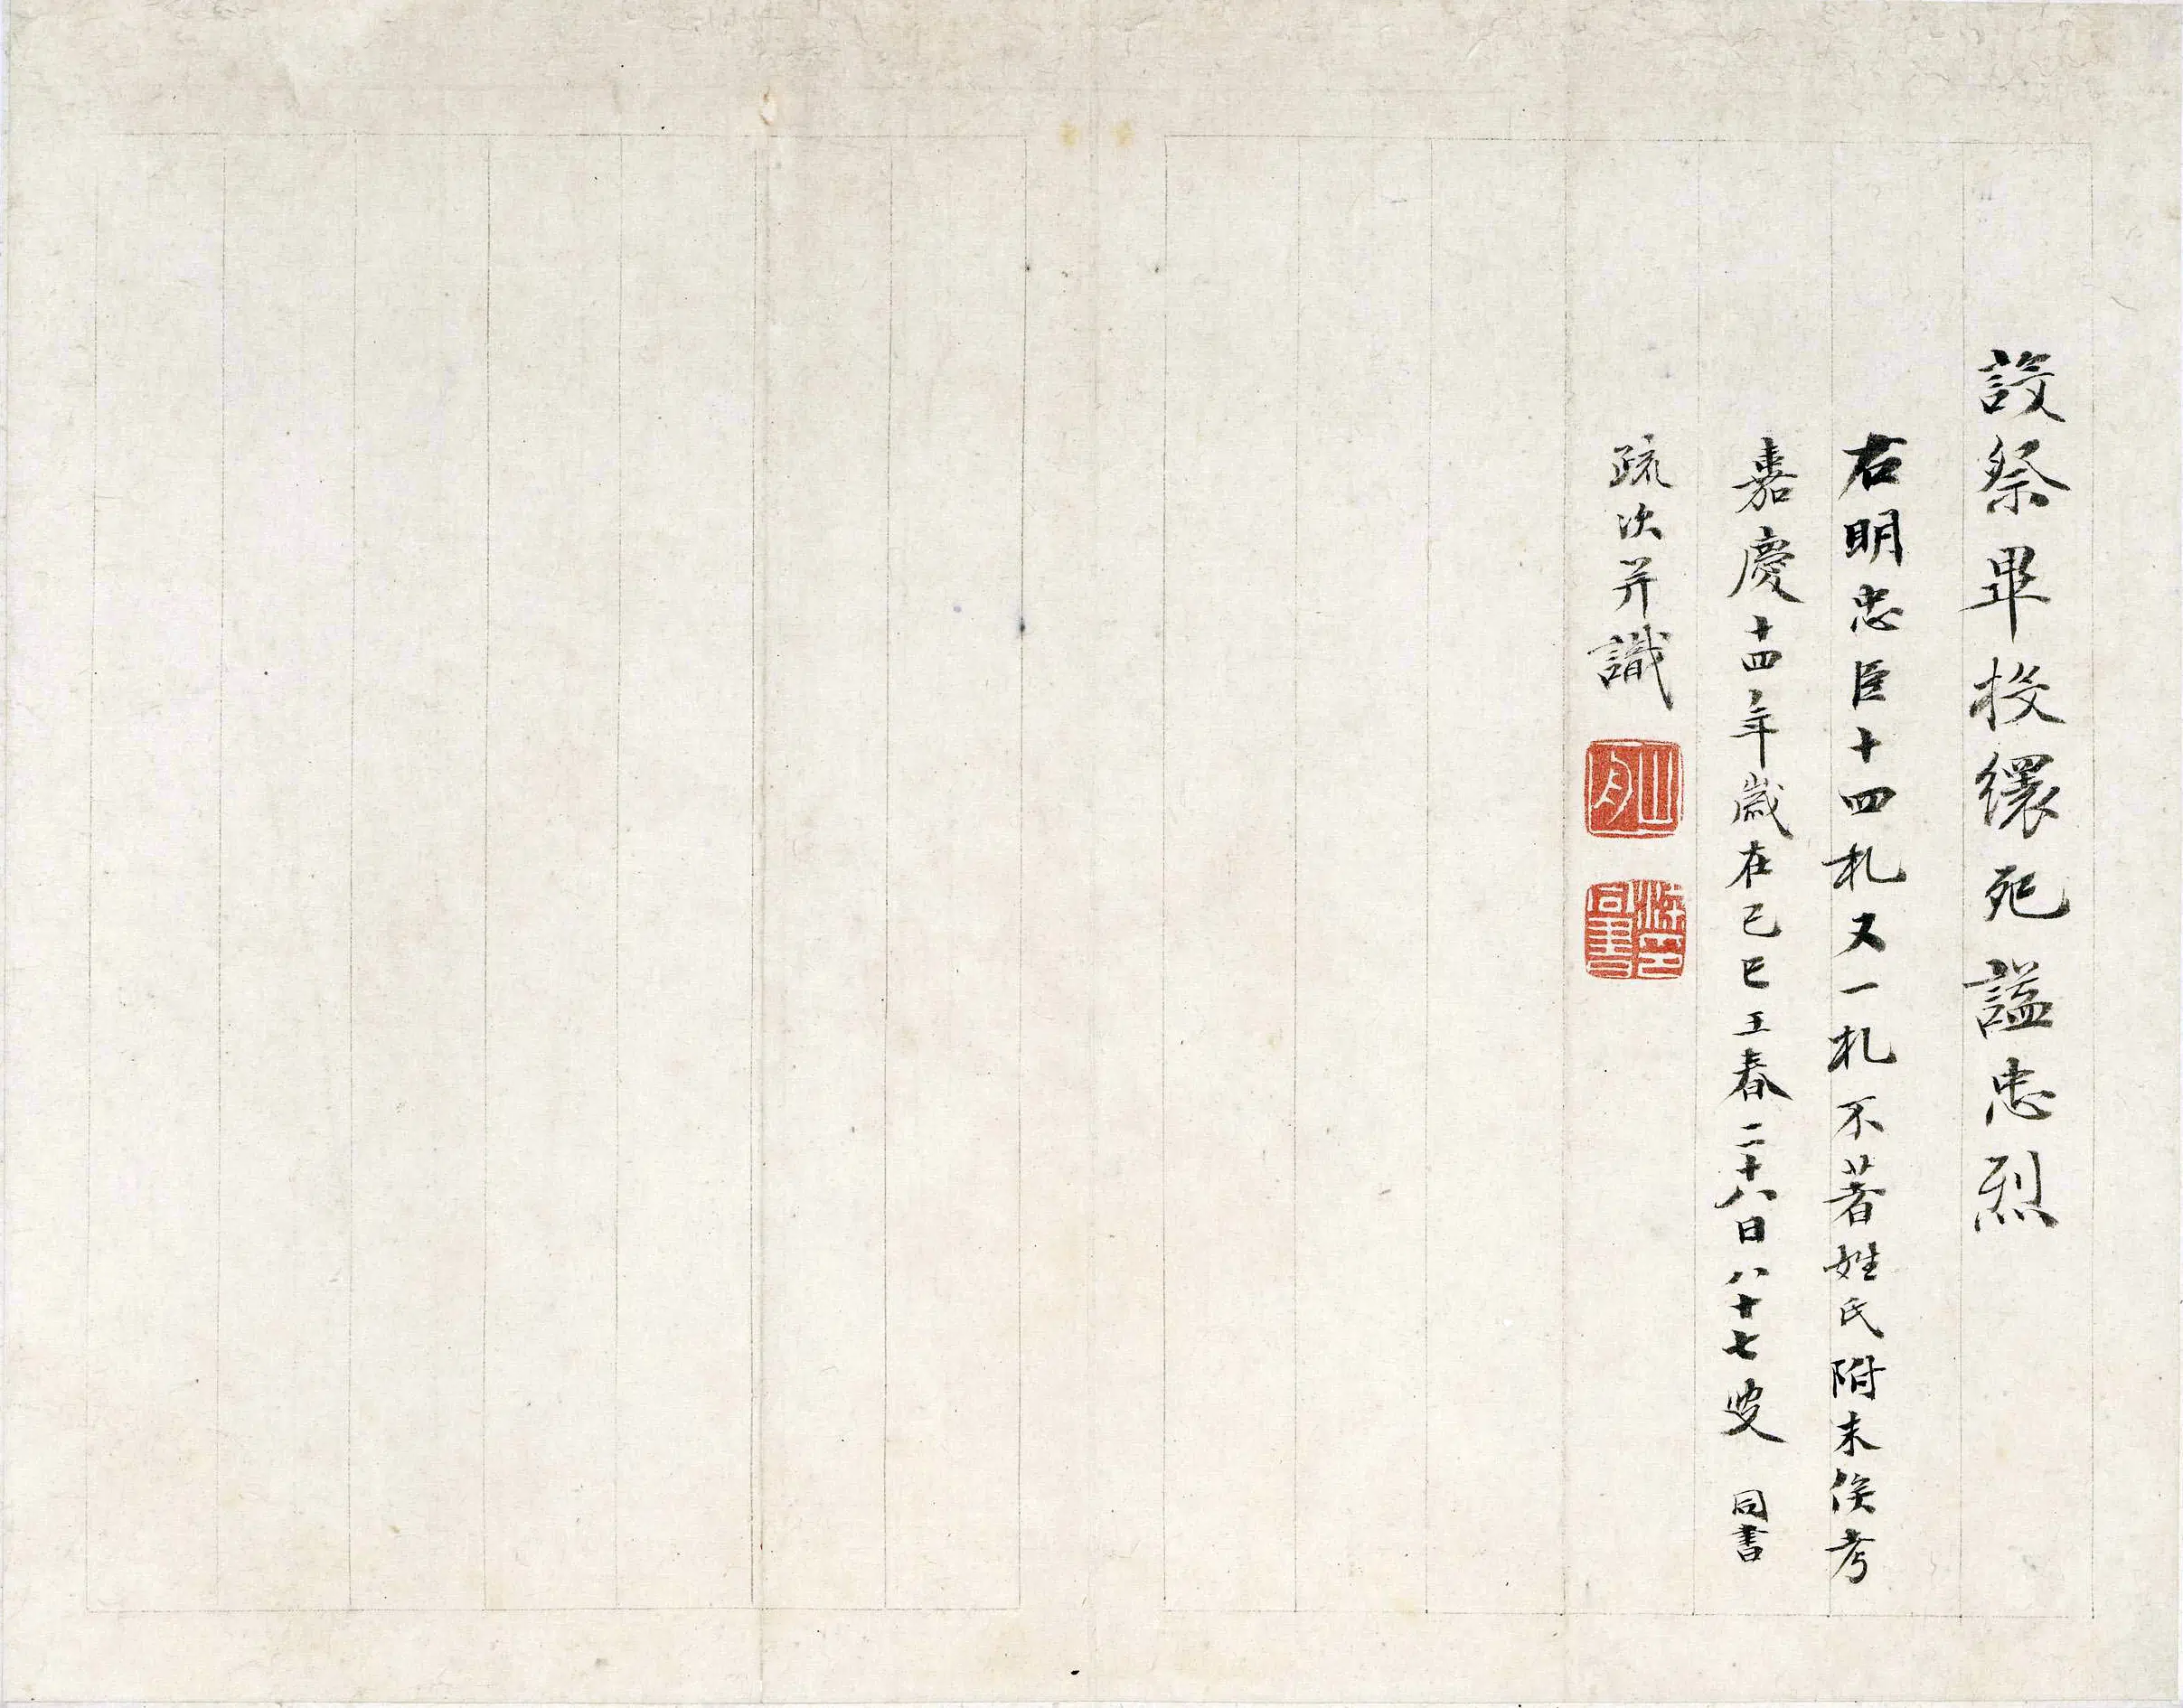 設祭畢投繯死謚忠烈
右明忠臣十四札又一札不著姓氏附末俟考
嘉慶十四年歲在己巳王春二十八日八十七叟 同書
疏次并識
山舟
梁同書印